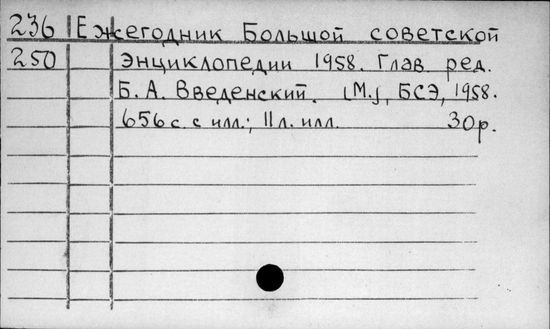 236 Ежегодник Большой советской
250 Энциклопедии 1958. Глав. ред.
Б. А. Введенский. [М.], БСЭ, 1958.
656 с. с илл.; 11 л. илл. 30 р.